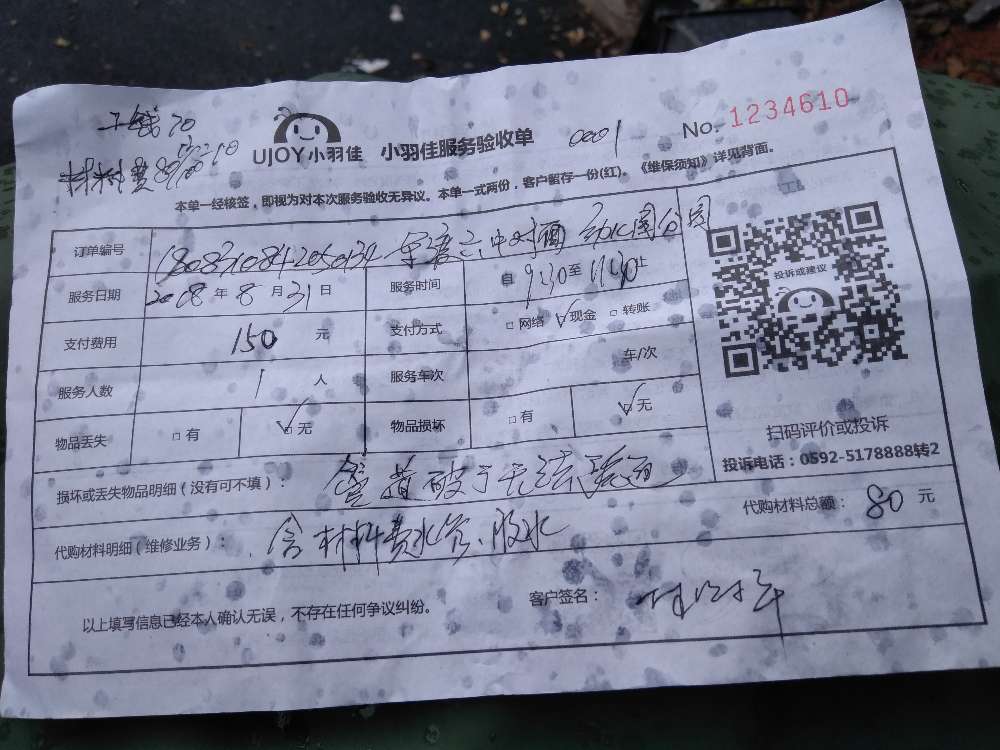 工钱70
材料费80
UJOY小羽佳 小羽佳服务验收单 0001 No. 1234610
本单一经核签，即视为对本次服务验收无异议。本单一式两份，客户留存一份(红)。《维保须知》详见背面。
订单编号 六中对面 幼儿园分园
服务日期 2008年8月31日 服务时间 自9:30至11:30止
支付费用 150元 支付方式 □网络 ☑现金 □转账
服务人数 1人 服务车次 车/次
物品丢失 □有 ☑无 物品损坏 □有 ☑无
投诉或建议
扫码评价或投诉
投诉电话：0592-5178888转2
损坏或丢失物品明细（没有可不填）： 管道破了无法疏通
代购材料明细（维修业务）： 含材料费水管、胶水 代购材料总额： 80元
以上填写信息已经本人确认无误，不存在任何争议纠纷。 客户签名：